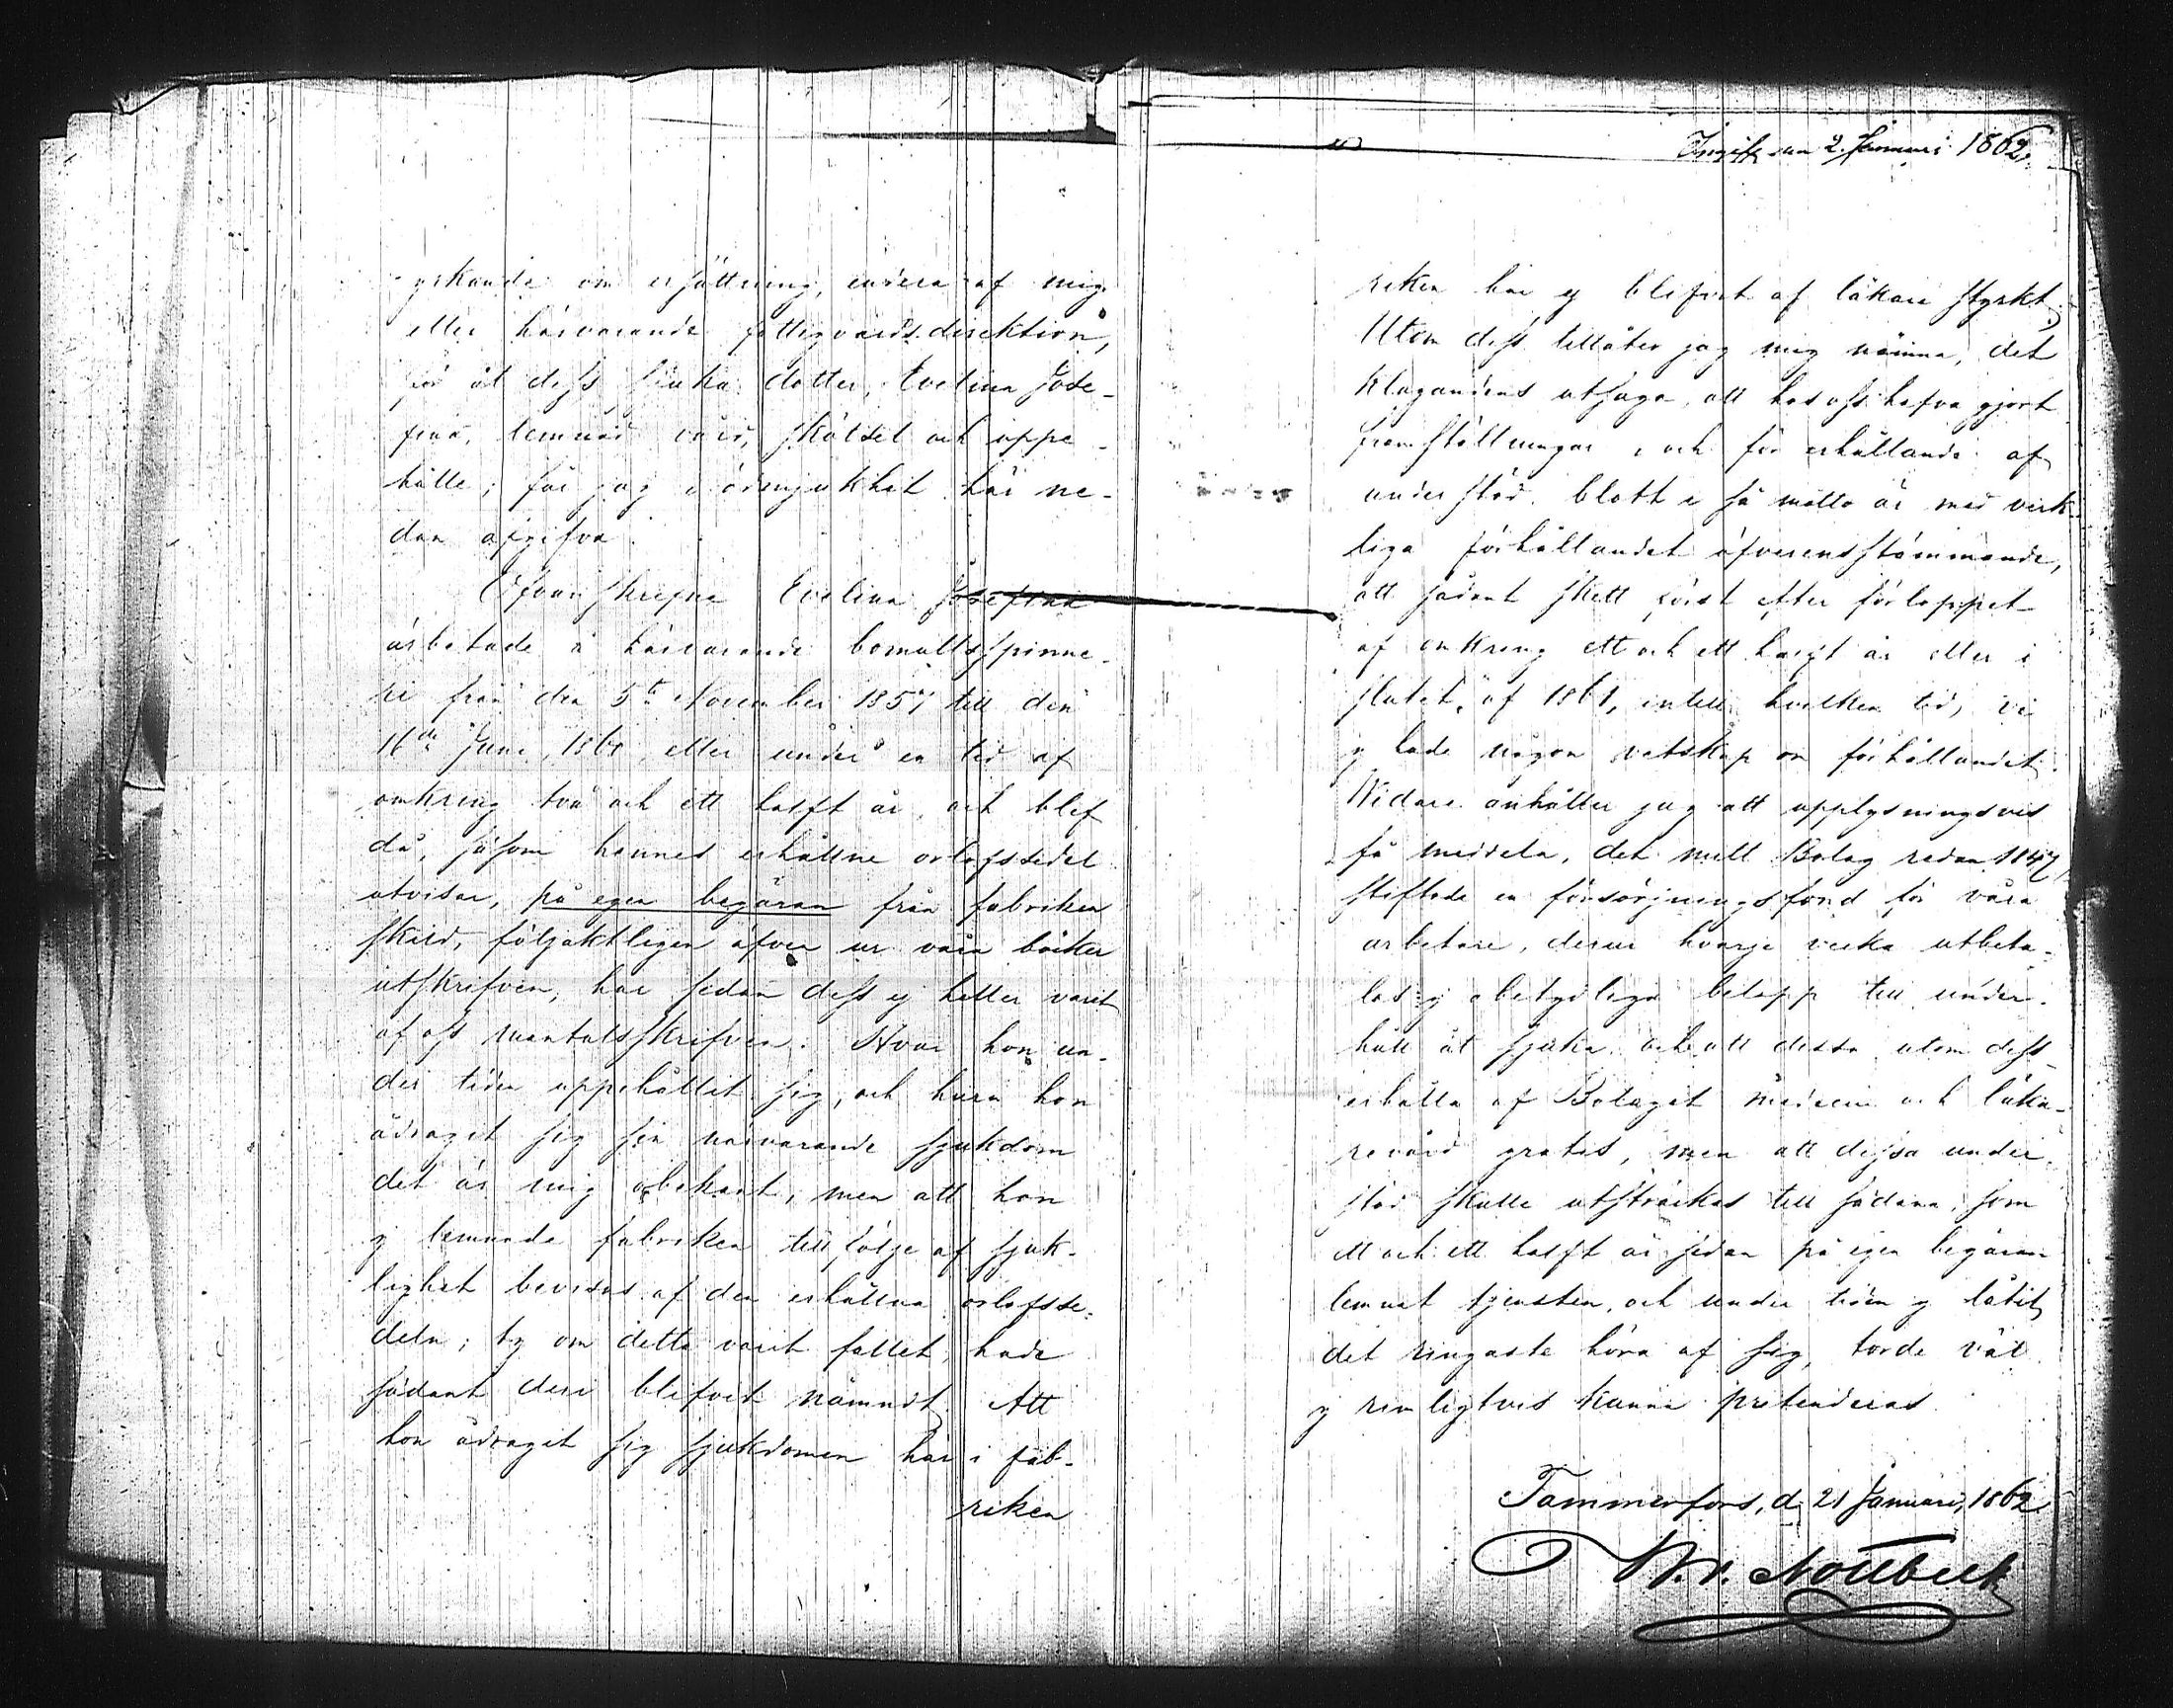 yrkande om ersättning, endera af mig
eller härvarande fattigvårds direktion,
för åt dess sjuka dotter, Evelina Jose-
fina, lemnad vård, skötsel och uppe-
hälle; får jag i ödmjukhet här ne-
dan afgifva.
Ofvanskrefne Evelina Josefina
arbetade å härvarande bomullsspinne-
ri från den 5te November 1857 till den
16de Juni, 1860, eller under en tid af
omkring två och ett halft år, och blef
då, såsom hennes erhållne orlofssedel
utvisar, på egen begäran från fabriken
skild, följaktligen äfven ur våra böcker
utskrifven, har sedan dess ej heller varit
af oss mantalsskrifven. Hvar hon un-
der tiden uppehållit sig, och huru hon
ådragit sig sin närvarande sjukdom
det är mig obekant, men att hon
ej lemnade fabriken till följe af sjuk-
lighet bevisas af den erhållna orlofsse-
deln; ty om detta varit fallet, hade
sådant deri blifvit nämndt. Att
hon ådragit sig sjukdomen här i fab-
riken
Ingift den 2. Januari 1862.
riken har ej blifvit af läkare styrkt.
Utom dess tillåter jag mig nämna, det
klagandens utsago, att hos oss hafva gjort
framställningar, och för erhållande af
understöd, blott i så måtto är med verk-
liga förhållandet öfverensstämmande,
att sådant skett först efter förloppet
af omkring ett och ett halft år eller i
slutet af 1861, intill hvilken tid, vi
ej hade någon vetskap om förhållandet.
Widare anhåller jag att upplysningsvis
få meddela, det mitt Bolag redan 1847,
stiftade en försörjningsfond för våra
arbetare, derur hvarje vecka utbeta-
las ej obetydliga belopp till under-
håll åt sjuka, och att dessa utom dess
erhålla af Bolaget medicin och läka-
revård gratis, men att dessa under-
stöd skulle utsträckas till sådana, som
ett och ett halft år sedan på egen begäran
lemnat tjensten, och under tiden ej låtit
det ringaste höra af sig, torde väl
ej rimligtvis kunna pretenderas.
Tammerfors, d. 21 Januari, 1862
W.v. Nottbeck